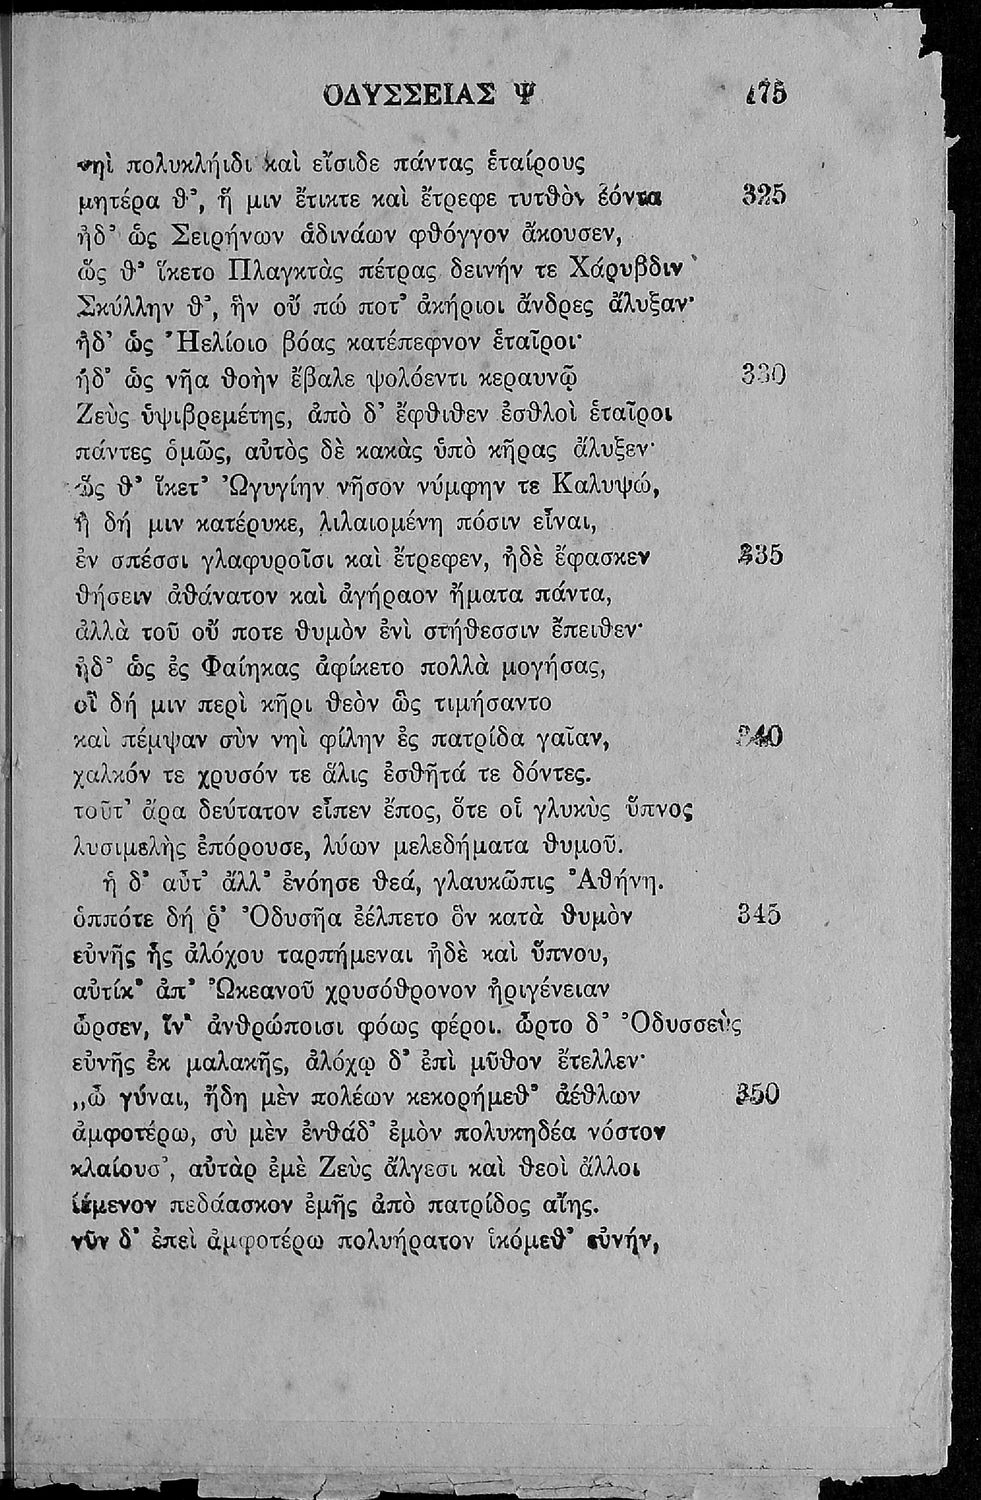 ΟΔΥΣΣΕΙΑΣ Ψ 175
νηὶ πολυκλήιδι καὶ εἴσιδε πάντας ἑταίρους
μητέρα θ᾽, ἥ μιν ἔτικτε καὶ ἔτρεφε τυτθὸν ἐόντα 325
ἠδ᾽ ὡς Σειρήνων ἁδινάων φθόγγον ἄκουσεν,
ὥς θ᾽ ἵκετο Πλαγκτὰς πέτρας δεινήν τε Χάρυβδιν
Σκύλλην θ᾽, ἣν οὔ πώ ποτ᾽ ἀκήριοι ἄνδρες ἄλυξαν·
ἠδ᾽ ὡς Ἠελίοιο βόας κατέπεφνον ἑταῖροι·
ἠδ᾽ ὡς νῆα θοὴν ἔβαλε ψολόεντι κεραυνῷ 330
Ζεὺς ὑψιβρεμέτης, ἀπὸ δ᾽ ἔφθιθεν ἐσθλοὶ ἑταῖροι
πάντες ὁμῶς, αὐτὸς δὲ κακὰς ὑπὸ κῆρας ἄλυξεν·
ὥς θ᾽ ἵκετ᾽ Ὠγυγίην νῆσον νύμφην τε Καλυψώ,
ἣ δή μιν κατέρυκε, λιλαιομένη πόσιν εἶναι,
ἐν σπέσσι γλαφυροῖσι καὶ ἔτρεφεν, ἠδὲ ἔφασκεν 335
θήσειν ἀθάνατον καὶ ἀγήραον ἤματα πάντα,
ἀλλὰ τοῦ οὔ ποτε θυμὸν ἐνὶ στήθεσσιν ἔπειθεν·
ἠδ᾽ ὡς ἐς Φαίηκας ἀφίκετο πολλὰ μογήσας,
οἳ δή μιν περὶ κῆρι θεὸν ὣς τιμήσαντο
καὶ πέμψαν σὺν νηὶ φίλην ἐς πατρίδα γαῖαν, 340
χαλκόν τε χρυσόν τε ἅλις ἐσθῆτά τε δόντες.
τοῦτ᾽ ἄρα δεύτατον εἶπεν ἔπος, ὅτε οἱ γλυκὺς ὕπνος
λυσιμελὴς ἐπόρουσε, λύων μελεδήματα θυμοῦ.
ἡ δ᾽ αὖτ᾽ ἄλλ᾽ ἐνόησε θεά, γλαυκῶπις Ἀθήνη.
ὁππότε δή ῥ᾽ Ὀδυσῆα ἐέλπετο ὃν κατὰ θυμὸν 345
εὐνῆς ἧς ἀλόχου ταρπήμεναι ἠδὲ καὶ ὕπνου,
αὐτίκ᾽ ἀπ᾽ Ὠκεανοῦ χρυσόθρονον ἠριγένειαν
ὦρσεν, ἵν᾽ ἀνθρώποισι φόως φέροι. ὦρτο δ᾽ Ὀδυσσεὺς
εὐνῆς ἐκ μαλακῆς, ἀλόχῳ δ᾽ ἐπὶ μῦθον ἔτελλεν·
„ὦ γύναι, ἤδη μὲν πολέων κεκορήμεθ᾽ ἀέθλων 350
ἀμφοτέρω, σὺ μὲν ἐνθάδ᾽ ἐμὸν πολυκηδέα νόστον
κλαίουσ᾽, αὐτὰρ ἐμὲ Ζεὺς ἄλγεσι καὶ θεοὶ ἄλλοι
ἱέμενον πεδάασκον ἐμῆς ἀπὸ πατρίδος αἴης.
νῦν δ᾽ ἐπεὶ ἀμφοτέρω πολυήρατον ἱκόμεθ᾽ εὐνήν,